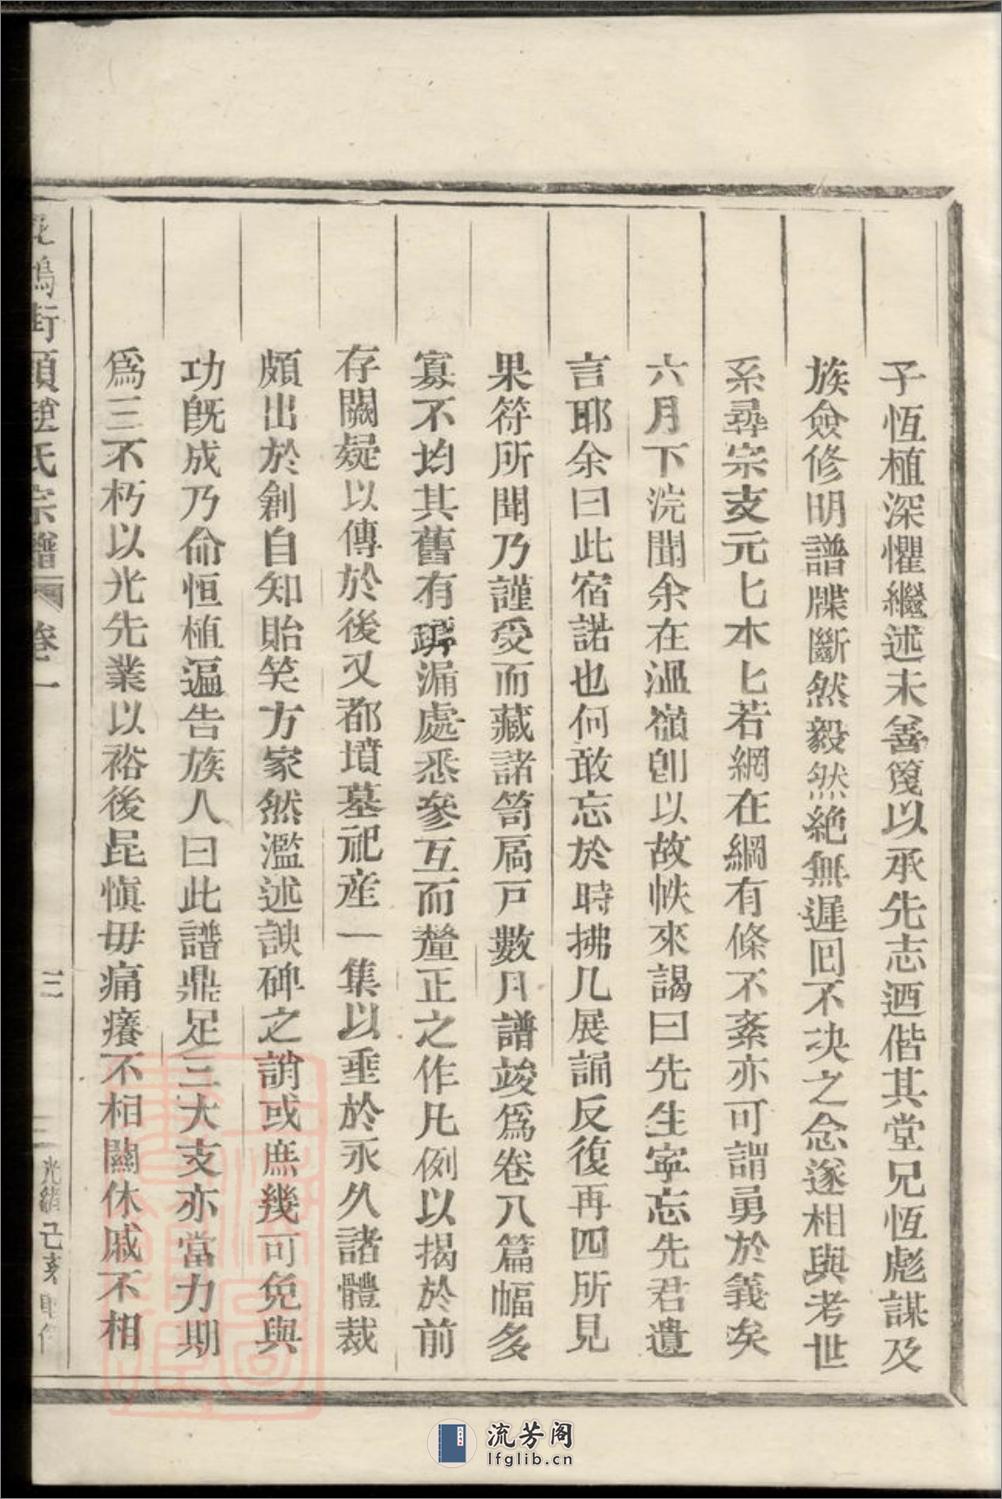 子恆植深懼繼述未善篾以承先志迺偕其堂兄恆彪謀及
族僉修明譜牒斷然毅然絶無遲囘不决之念遂相與考世
系尋宗支元匕本匕若網在綱有條不紊亦可謂勇於義矣
六月下浣聞余在溫嶺卽以故帙來謁曰先生寜忘先君遺
言耶余曰此宿諾也何敢忘於時拂几展誦反復再四所見
果符所聞乃謹受而藏諸笥扃戸數月譜竣爲卷八篇幅多
寡不均其舊有踳漏處悉參互而釐正之作凡例以揭於前
存闕疑以傳於後又都墳墓祀産一集以垂於永久諸體裁
頗出於創自知貽笑方家然濫述諛碑之誚或庶幾可免與
功旣成乃命恒植遍告族人曰此譜鼎足三大支亦當力期
爲三不朽以光先業以裕後昆愼毋痛癢不相關休戚不相
塢街頭趙氏宗譜 卷一 三 光緒己亥
流芳阁
lfglib.cn